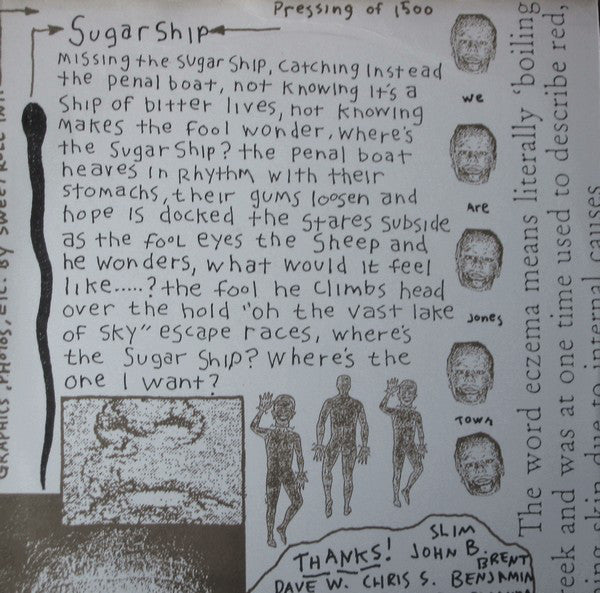 Pressing of 1500
Sugar Ship
Missing the sugar ship, catching instead
the penal boat, not knowing it's a
ship of bitter lives, not knowing
makes the fool wonder, where's
the Sugar Ship? the penal boat
heaves in rhythm with their
stomachs, their gums loosen and
hope is docked the stares subside
as the fool eyes the sheep and
he wonders, what would it feel
like.....? the fool he climbs head
over the hold "oh the vast lake
of sky" escape races, where's
the Sugar Ship? Where's the
one I want?
we
Are
Jones
Town
GRAPHICS, PHOTOS, ETC. BY SWEET
The word eczema means literally 'boiling
and was at one time used to describe red,
skin due to internal causes
THANKS!
SLIM
JOHN B.
BRENT
DAVE W. CHRIS S. BENJAMIN